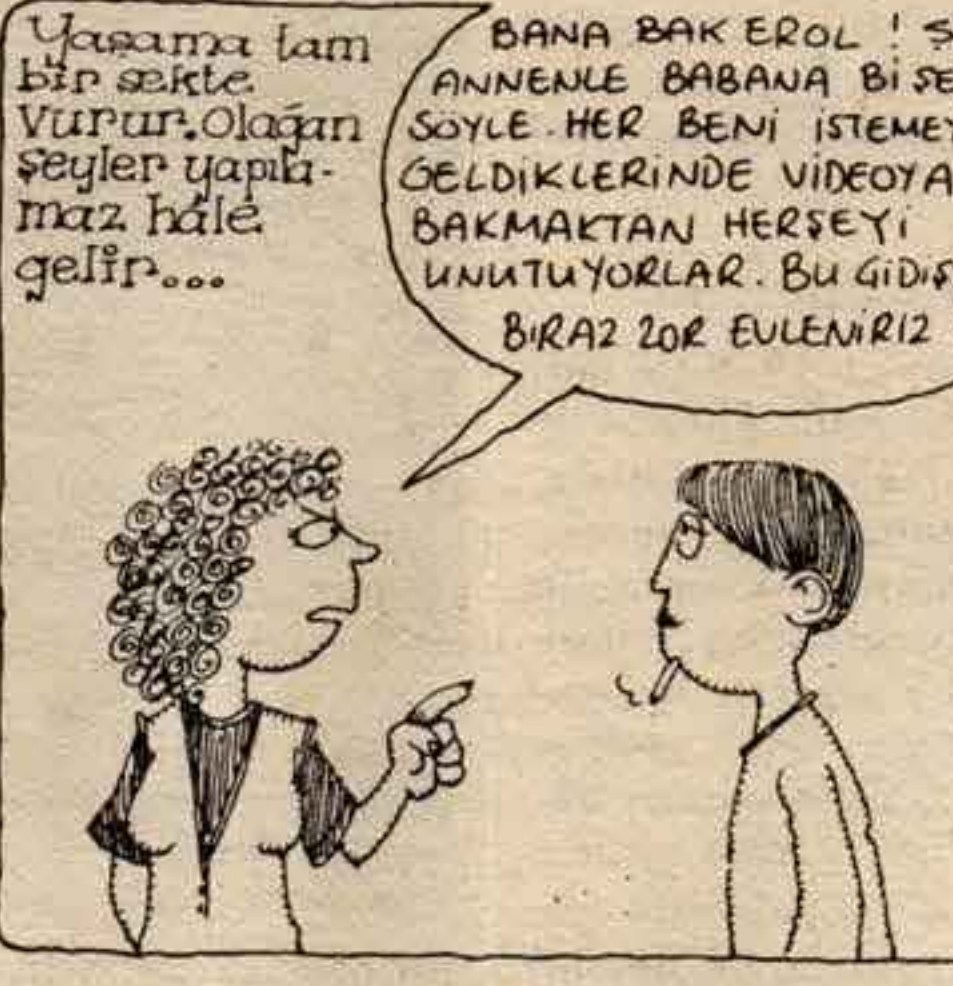 Yaşama tam
bir sekte
vurur. Olağan
şeyler yapıla-
maz hâle
gelir...
BANA BAK EROL ! Ş
ANNENLE BABANA BİŞE
SÖYLE. HER BENİ İSTEMEY
GELDİKLERİNDE VİDEOYA
BAKMAKTAN HERŞEYİ
UNUTUYORLAR. BU GİDİŞ
BİRAZ ZOR EVLENİRİZ